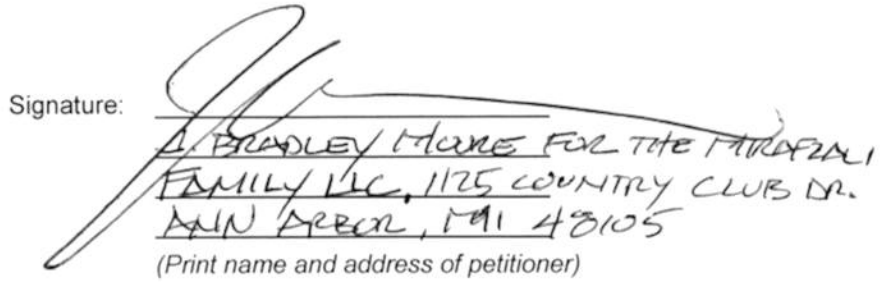 Signature:
J. BRADLEY MOORE FOR THE MIRAFZALI
FAMILY LLC, 1125 COUNTRY CLUB DR.
ANN ARBOR, MI 48105
(Print name and address of petitioner)